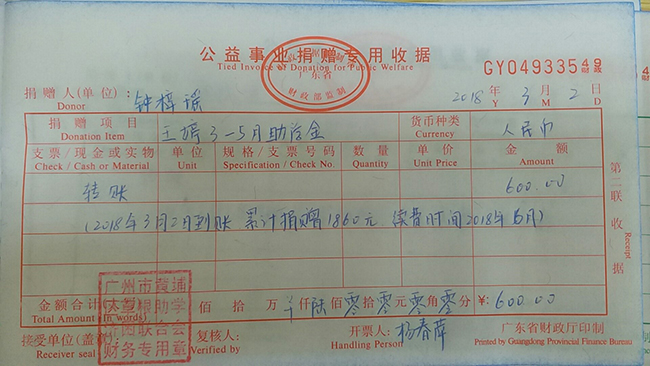 公益事业捐赠专用收据
Tied Invoice of Donation for Public Welfare
广东省
财政部监制
GY04933549
捐赠人(单位):
Donor
2018 年 3 月 2 日
Y M D
捐赠项目 3-5月助学金 货币种类 人民币
Donation Item Currency
支票/现金或实物 单位 规格/支票号码 数量 单价 金额
Check / Cash or Material Unit Specification / Check No. Quantity Unit Price Amount
转账 600.00
(2018年3月2日到账 累计捐赠1860元 续费时间2018年6月)
广州市黄埔
财务专用章
金额合计 佰 拾 万 仟 陆 佰 零 拾 零 元 零 角 零 分 ¥: 600.00
Total Amount (In words)
接受单位(盖章) 复核人: 开票人: 杨春萍 广东省财政厅印制
Receiver seal Verified by Handling Person Printed by Guangdong Provincial Finance Bureau
第二联 收据
Receipt